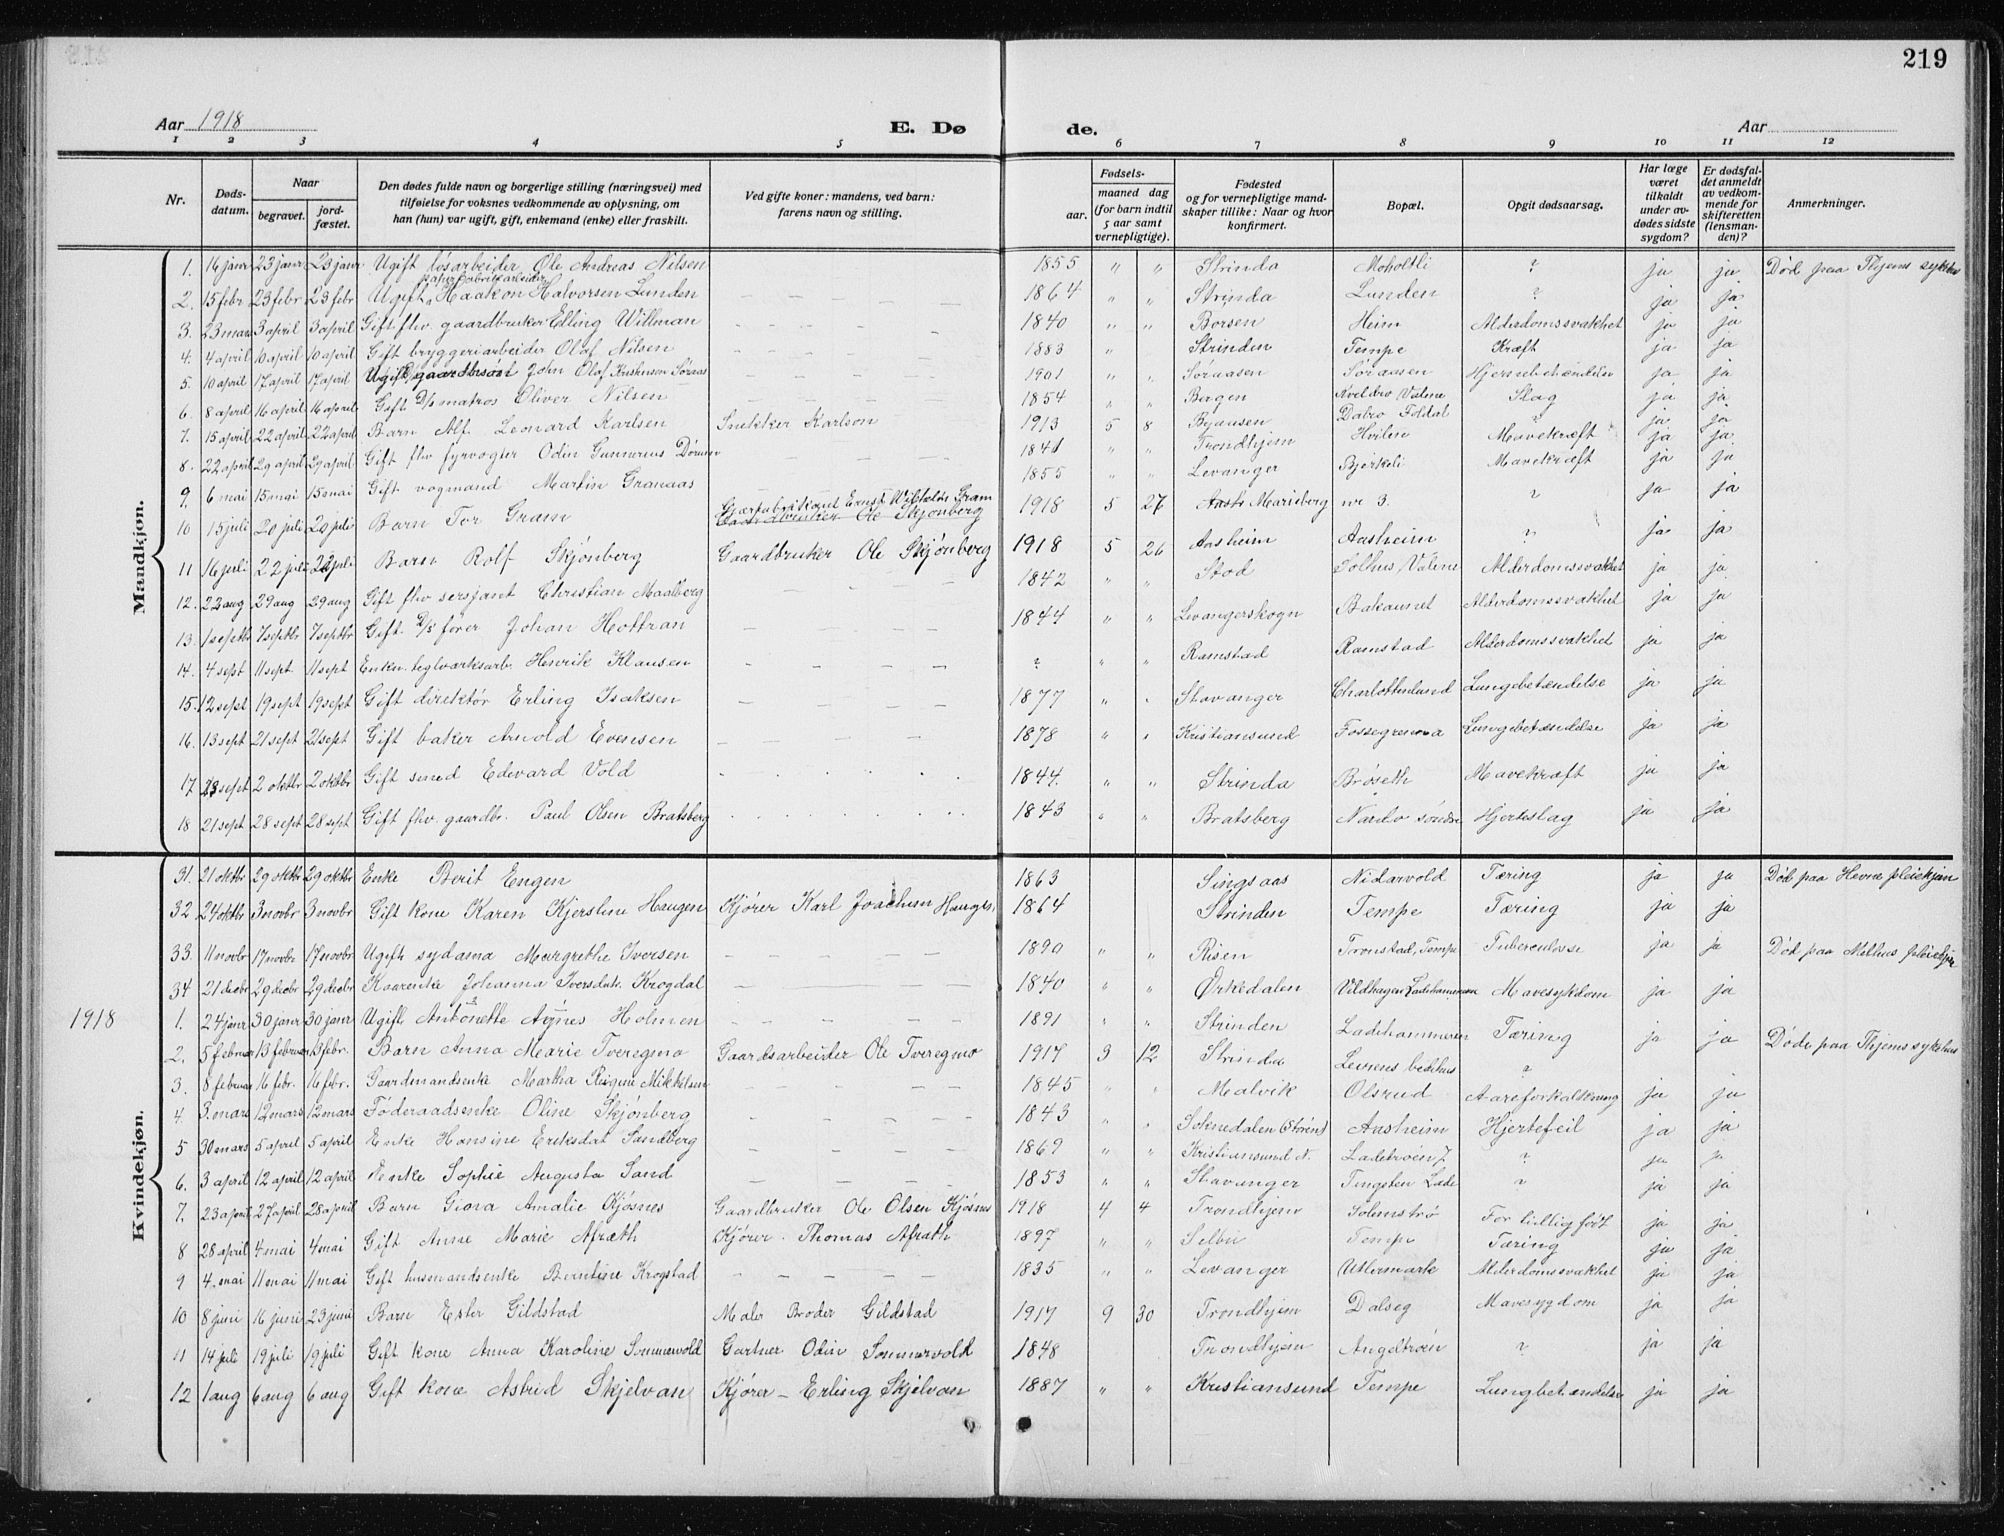 219
Aar 1918
E. Dø de.
Aar
1 2 3 4 5 6 7 8 9 10 11 12
Nr. | Døds-datum. | Naar begravet. | jord-fæstet. | Den dødes fulde navn og borgerlige stilling (næringsvei) med tilføielse for voksnes vedkommende av oplysning, om han (hun) var ugift, gift, enkemand (enke) eller fraskilt. | Ved gifte koner: mandens, ved barn: farens navn og stilling. | Fødsels- aar. | maaned dag (for barn indtil 5 aar samt vernepligtige). | Fødested og for vernepligtige mandskaper tillike: Naar og hvor konfirmert. | Bopæl. | Opgit dødsaarsag. | Har læge været tilkaldt under avdødes sidste sygdom? | Er dødsfaldet anmeldt av vedkommende for skifteretten (lensmanden)? | Anmerkninger.
Mandkjøn.
1. 16 janr 23 janr 23 janr Ugift løsarbeider Ole Andreas Nilsen 1855 " " Strinda Moholtli ? ja ja Død paa Thjems sykehus
2. 15 febr 23 febr 23 febr Ugift Haakon Halvorsen Lunden 1864 " " Strinda Lunden ? ja ja
3. 23 mars 3 april 3 april Gift fhv. gaardbruker Elling Willman — — — — 1840 " " Børsen Heim Alderdomssvakhet ja ja
4. 4 april 10 april 10 april Gift bryggeriarbeider Olaf Nilsen — — — — 1883 " " Strinden Tempe Kræft ja ja
5. 10 april 17 april 17 april Ugift gaardbrsøn John Olaf Søraas 1901 " " Søraasen Søraasen Hjernebetændelse ja ja
6. 8 april 16 april 16 april Gift D/s matros Oliver Nilsen 1854 " " Bergen Slag ja ja
7. 15 april 22 april 22 april Barn Alf Leonard Karlsen Snekker Karlson 1913 5 8 Byaasen ? ja ja
8. 22 april 29 april 29 april Gift fhv fyrvogter Odin Gunnerius 1841 " " Trondhjem Hvilen Mavekræft ja ja
9. 6 mai 15 mai 15 mai Gift vognmand Martin Granaas 1855 " " Levanger Bjerkeli Mavekræft ja ja
10 15 juli 20 juli 20 juli Barn Tor Gram Gjærfabrikant Ernst Gram Gaardbruker Ole Skjønberg 1918 5 27 Marieberg nr 3. ? ja ja
11 16 juli 22 juli 22 juli Barn Rolf Skjønberg Gaardbruker Ole Skjønberg 1918 5 26 Aasheim Aasheim ? ja ja
12. 22 aug 29 aug 29 aug Gift fhv sersjant Christian Maalberg 1842 " " Stod Solhus Alderdomssvakhet ja ja
13. 1 septbr 7 septbr 7 septbr Gift. D/s fører Johan Hoftran 1844 " " Levangerskogn Bakaunet Alderdomssvakhet ja ja
14. 4 sept 11 sept 11 sept Enkem. teglværksarb. Henrik Klausen ? " " Ramstad Ramstad Alderdomssvakhet ja ja
15. 12 sept 19 sept 19 sept Gift direktør Erling Isaksen 1877 " " Stavanger Charlottenlund Lungebetændelse ja ja
16. 13 sept 21 sept 21 sept Gift baker Arnold Evensen 1878 " " Kristiansund Fossegrenda Lungebetændelse ja ja
17. 23 sept 2 oktbr 2 oktbr Gift smed Edevard Vold 1844. " " Strinda Brøseth Mavekræft ja ja
18 21 sept 28 sept 28 sept Gift fhv. gaardbr. Paul Olsen Bratsberg 1843 " " Bratsberg Nardo søndre Hjerteslag ja ja
Kvindekjøn.
31. 21 oktbr 29 oktbr 29 oktbr Enke Berit Engen 1863 Singsaas Nidarvold Tæring ja ja Død paa Hevne pleiehjem
32 24 oktbr 3 novbr 3 novbr Gift kone Karen Kjerstine Haugen Kjører Karl Joachim Haugen 1864 Strinden Tempe Tæring ja ja
33. 11 novbr 17 novbr 17 novbr Ugift sydama Margrethe Iversen 1890 " " Risen Tronstad, Tempe Tuberculose ja ja Død paa Melhus pleiehjem
34 21 decbr 29 decbr 29 decbr Kaarenke Johanna Iversdatr. Krogdal 1840 " " Ørkedalen Vildhagen Ladehammeren Mavesykdom ja ja
1918
1. 24 janr 30 janr 30 janr Ugift Antonette Agnes Holmen 1891 " " Strinden Ladehammeren Tæring ja ja
2. 5 februar 13 februar 13 febr. Barn Anna Marie Tveregmo Gaardsarbeider Ole Tveregmo 1917 3 12 Strinda Leirens bedehus ? Døde paa Thjems sykehus
3. 8 februar 16 febr. 16 febr. Gaardmandsenke Martha Regine Mikkelsen 1845 " " Malvik Olsrud Aareforkalkning ja ja
4. 3. mars 12 mars 12 mars Føderaadsenke Oline Skjønberg 1843 " Soknedalen (Støren) Aasheim Hjertefeil ja ja
5 30 mars 5 april 5 april Enke Hansine Eriksdat Sandberg 1869 " " Kristiansund N. Ladetroen 7 ? ja ja
6. 3 april 12 april 12 april Enke Sophie Augusta Sand 1853 " " Stavanger Tungsten Lade ? ja ja
7. 23 april 27 april 28 april Barn Giora Amalie Kjøsnes Gaardbruker Ole Olsen Kjøsnes 1918 4 4 Trondhjem Solemstrø For tidlig født ja ja
8 28 april 4 mai 4 mai Gift Anne Marie Afræth Kjører. Thomas Afræth 1897 " " Selbu Tempe Tæring ja ja
9 4. mai 11 mai 11 mai Gift husmandsenke Berntine Krogstad 1835 " " Levanger Uttermark Alderdomssvakhet ja ja
10 8 juni 16 juni 23 juni Barn Ester Gildstad Maler Broder Gildstad 1917 9 30 Trondhjem Dalseg Mavesygdom ja ja
11 14 juli 19 juli 19 juli Gift kone Anna Karoline Sommervold Gartner Odin Sommervold 1848 Trondhjem Angeltrøen ? ja ja
12 1 aug 6 aug 6 aug Gift kone Astrid Skjelvan Kjører – Erling Skjelvan 1887 " " Kristiansund Tempe Lungbetændelse ja ja